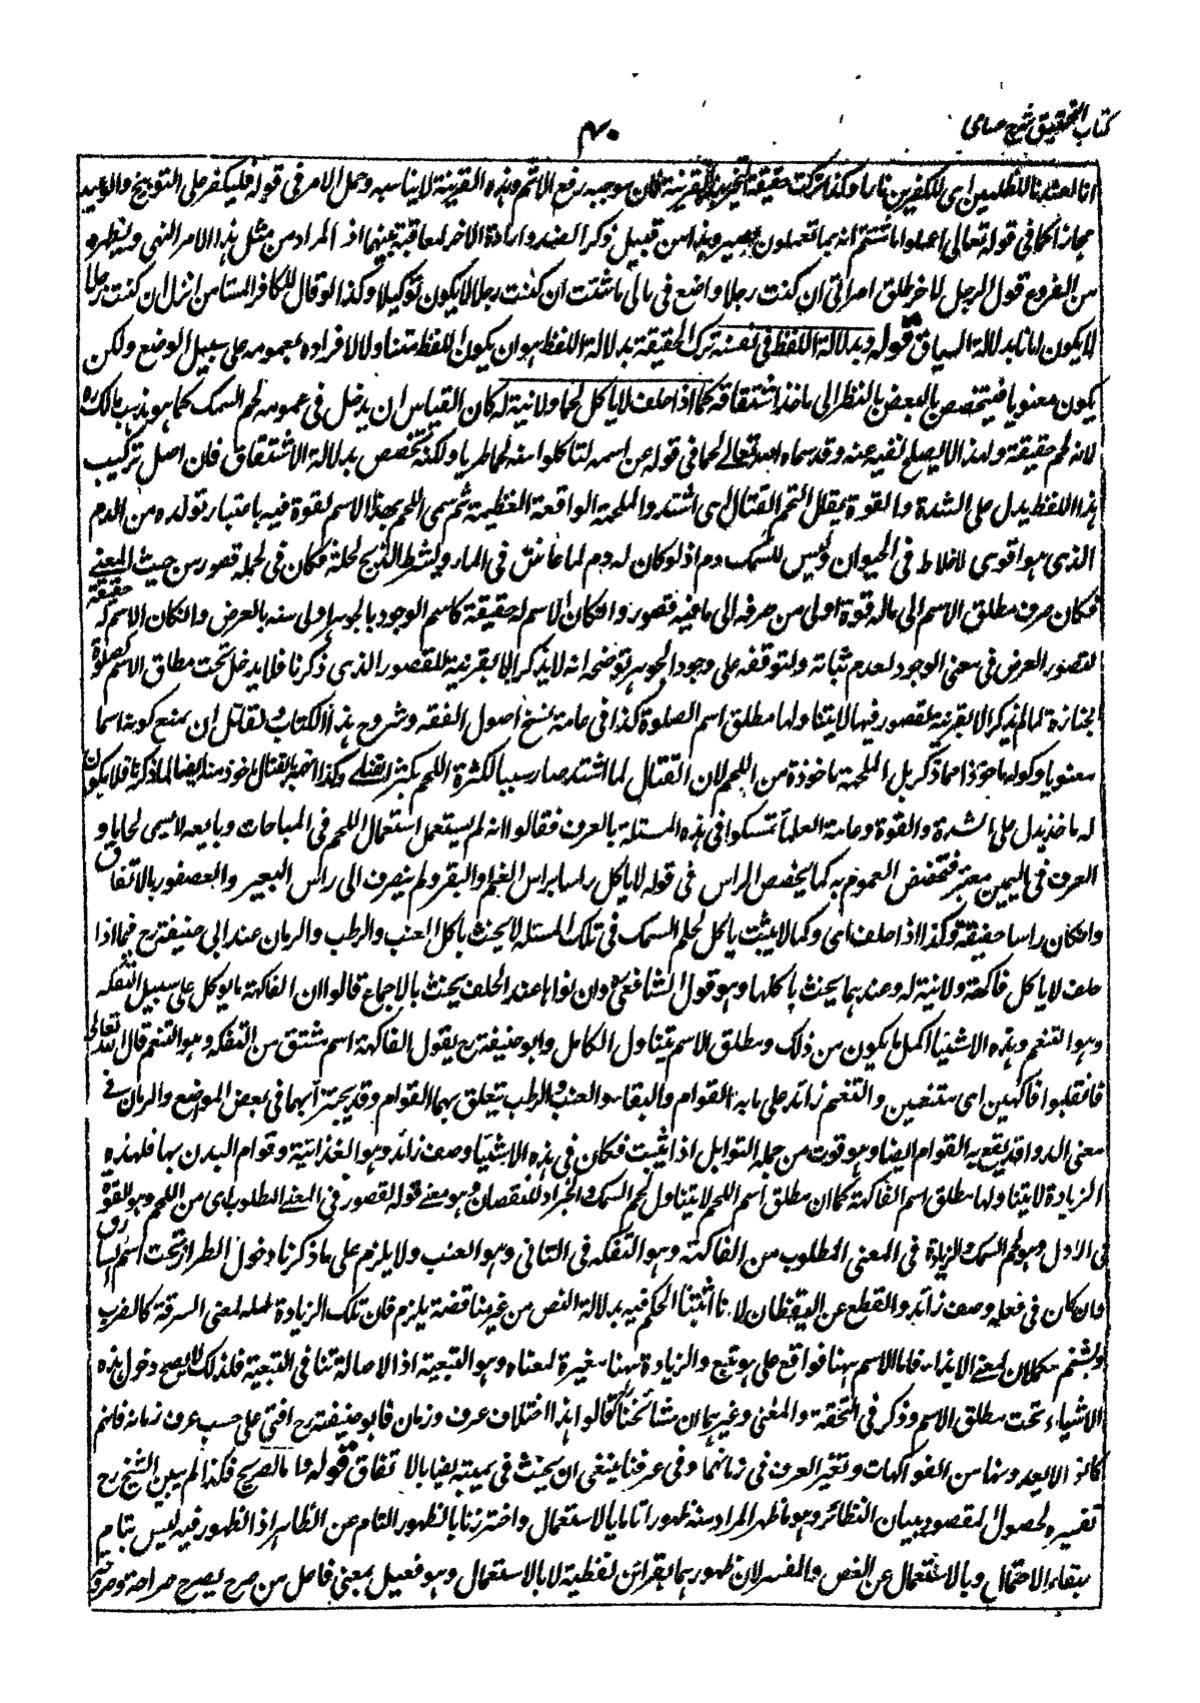 كتاب التحقيق شرح حسامى
٤٠
انا اعتدنا للظلمين اى للكفرين نارا وكذا تركت حقيقة التخيير بهذه القرينة فكان موجبه رفع الاثم وهذه القرينة لا يناسبه وحمل الامر فى قوله فليكفر على التوبيخ والوعيد
مجازا كما فى قوله تعالى اعملوا ما شئتم انه بما تعملون بصير وهذا من قبيل ذكر الضد وارادة الاخر لمعاقبة بينهما اذ المراد من مثل هذا الامر النهى ونظيره
من الفروع قول الرجل لاخر طلق امراتى ان كنت رجلا واضع فى مالى ما شئت ان كنت رجلا لا يكون توكيلا وكذا لو قال للكافر المستامن انزل ان كنت رجلا
لا يكون امانا بدلالة السياق قوله وبدلالة اللفظ فى نفسه ترك الحقيقة بدلالة اللفظ هو ان يكون اللفظ متناولا لافراده بعمومه على سبيل الوضع ولكن
يكون معنويا فيتخصص بالبعض بالنظر الى ماخذ اشتقاقه كما اذا حلف لا ياكل لحما ولا نية له كان القياس ان يدخل فى عمومه لحم السمك كما هو مذهب مالك ره
لانه لحم حقيقة ولهذا لا يصلح نفيه عنه وقد سماه الله تعالى لحما فى قوله عز اسمه لتاكلوا منه لحما طريا ولكنه تخصص بدلالة الاشتقاق فان اصل تركيب
هذا اللفظ يدل على الشدة والقوة يقال التحم القتال اى اشتد والملحمة الواقعة العظيمة ثم سمى اللحم بهذا الاسم لقوة فيه باعتبار تولده من الدم
الذى هو اقوى الاخلاط فى الحيوان وليس للسمك دم اذ لو كان له دم لما عاش فى الماء ويشترط الذبح لحله فكان فى لحمه قصور من حيث المعنى
فكان صرف مطلق الاسم الى ماله قوة اولى من صرفه الى ما فيه قصور وان كان الاسم له حقيقة كاسم الوجود بالجوهر اولى منه بالعرض وان كان الاسم له حقيقة
لقصور العرض فى معنى الوجود لعدم ثباته ولتوقفه على وجود الجوهر توضحه انه لا يذكر الا بقرينة للقصور الذى ذكرنا فلا يدخل تحت مطلق الاسم كصلوة
الجنازة لما لم يذكر الا بقرينة لقصور فيها لا يتناولها مطلق اسم الصلوة كذا فى عامة نسخ اصول الفقه وشروح هذا الكتاب ولقائل ان يمنع كونه اسما
معنويا وكونه ماخوذا مما ذكر بل الملحمة ماخوذة من اللحم لان القتال لما اشتد صار سببا لكثرة اللحم بكثرة القتلى وكذا التحم القتال ماخوذ منه ايضا لما ذكرنا فلا يكون
له ماخذ يدل على الشدة والقوة وعامة العلماء تمسكوا فى هذه المسئلة بالعرف فقالوا انه لم يستعمل استعمال اللحم فى المباحات وبايعه لا يسمى لحاما و
العرف فى اليمين معتبر فتخصص العموم به كما يخصص الراس فى قوله لا ياكل راسا براس الغنم والبقر ولم ينصرف الى رأس البعير والعصفور بالاتفاق
وان كان راسا حقيقة وكذا اذا حلف اى وكما لا يحنث باكل لحم السمك فى تلك المسئلة لا يحنث باكل العنب والرطب والرمان عند ابى حنيفة رح فيما اذا
حلف لا ياكل فاكهة ولا نية له وعندهما يحنث باكلها وهو قول الشافعى وان نواها عند الحلف يحنث بالاجماع قالوا ان الفاكهة ما يوكل على سبيل التفكه
وهو التنعم وهذه الاشياء اكمل ما يكون من ذلك ومطلق الاسم يتناول الكامل وابو حنيفة رح يقول الفاكهة اسم مشتق من التفكه وهو التنعم قال الله تعالى
فانقلبوا فاكهين اى متنعمين والتنعم زائد على ما به القوام والبقاء والعنب والرطب يتعلق بهما القوام وقد يجتزأ بهما فى بعض المواضع والرمان فى
معنى الدواء قد يقع به القوام ايضا وهو قوت من جملة التوابل اذا يبست فكان فى هذه الاشياء وصف زائد وهو الغذائية وقوام البدن بها فلهذه
الزيادة لا يتناولها مطلق اسم الفاكهة كما ان مطلق اسم اللحم لا يتناول لحم السمك والجراد للنقصان وهو معنى قوله القصور فى المعنى المطلوب اى من اللحم وهو القوة
فى الاول وهو لحم السمك والزيادة فى المعنى المطلوب من الفاكهة وهو التفكه فى الثانى وهو العنب ولا يلزم على ما ذكرنا دخول الطرار تحت اسم السارق
وان كان فى فعله وصف زائد والقطع عن اليقظان لانا اثبتنا الحكم فيه بدلالة النص من غير مناقضة يلزم فان تلك الزيادة مكملة لمعنى السرقة كالضرب
والشتم مكملان لمعنى الايذاء فاما الاسم ههنا فواقع على ما هو تبع والزيادة ههنا مغيرة لمعناه وهو التبعية اذ الاصالة تنافى التبعية فلذلك لا يصح دخول هذه
الاشياء تحت مطلق الاسم وذكر فى التحفة والمغنى وغيرهما ان مشائخنا قالوا هذا اختلاف عرف وزمان فابو حنيفة رح افتى على حسب عرف زمانه فانهم
كانوا لا يعدونها من الفواكهات وتغير العرف فى زمانهما وفى عرفنا ينبغى ان يحنث فى يمينه ايضا بالاتفاق قوله واما الصريح فكذا لم يبين الشيخ رح
تفسيره لحصول المقصود ببيان النظائر وهو ما ظهر المراد منه ظهورا تاما بالاستعمال واحترزنا بالظهور التام عن الظاهر اذ الظهور فيه ليس بتام
لبقاء الاحتمال وبالاستعمال عن النص والمفسر لان ظهورهما بقرائن لفظية لا بالاستعمال وهو فعيل بمعنى فاعل من صرح يصرح صراحة وصروحة